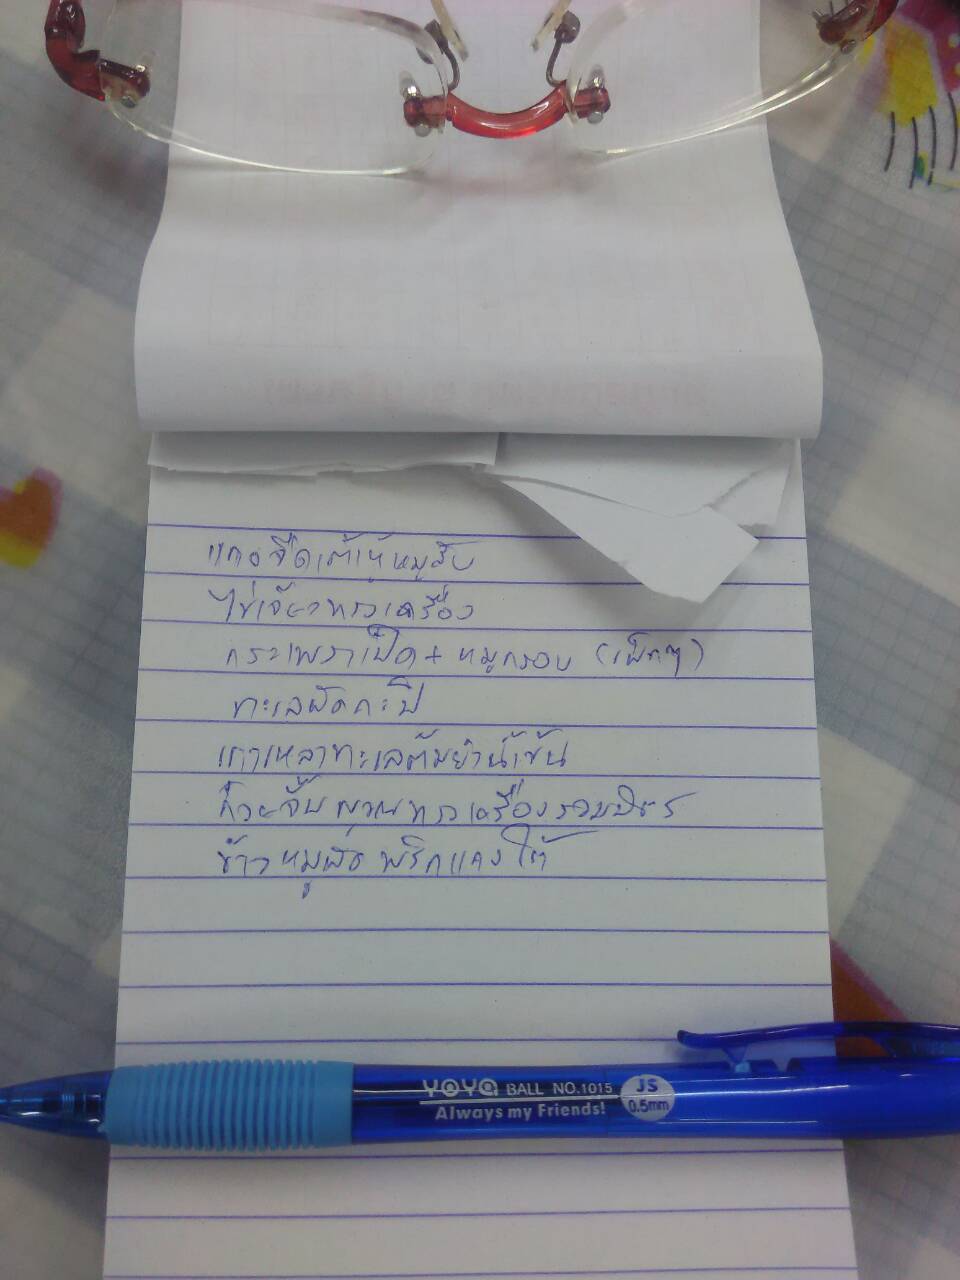 แกงจืดเต้าหู้หมูสับ
ไข่เจียวทรงเครื่อง
กระเพราเป็ด + หมูกรอบ (เผ็ดๆ)
ทะเลผัดกะปิ
เกาเหลาทะเลต้มยำน้ำข้น
ก๋วยจั๊บญวนทรงเครื่องรวมมิตร
ข้าวหมูผัดพริกแกงใต้
YOYA BALL NO.1015
Always my Friends!
JS
0.5mm